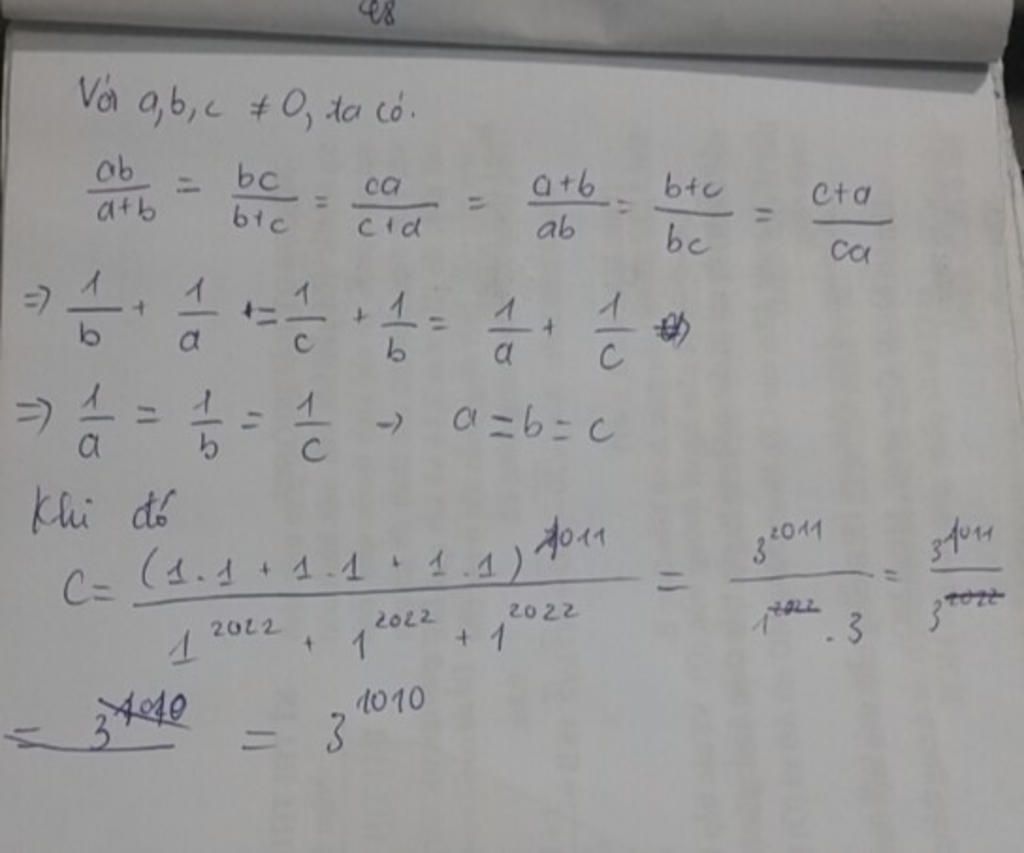 48
Với a, b, c ≠ 0, ta có.
ab/a+b = bc/b+c = ca/c+a = a+b/ab = b+c/bc = c+a/ca
=> 1/b + 1/a = 1/c + 1/b = 1/a + 1/c
=> 1/a = 1/b = 1/c → a = b = c
Khi đó
C = (1.1 + 1.1 + 1.1)^1011 / 1^2022 + 1^2022 + 1^2022 = 3^2011 / 1^2022 . 3 = 3^1011 / 3^2022
= 3^1010 = 3^1010